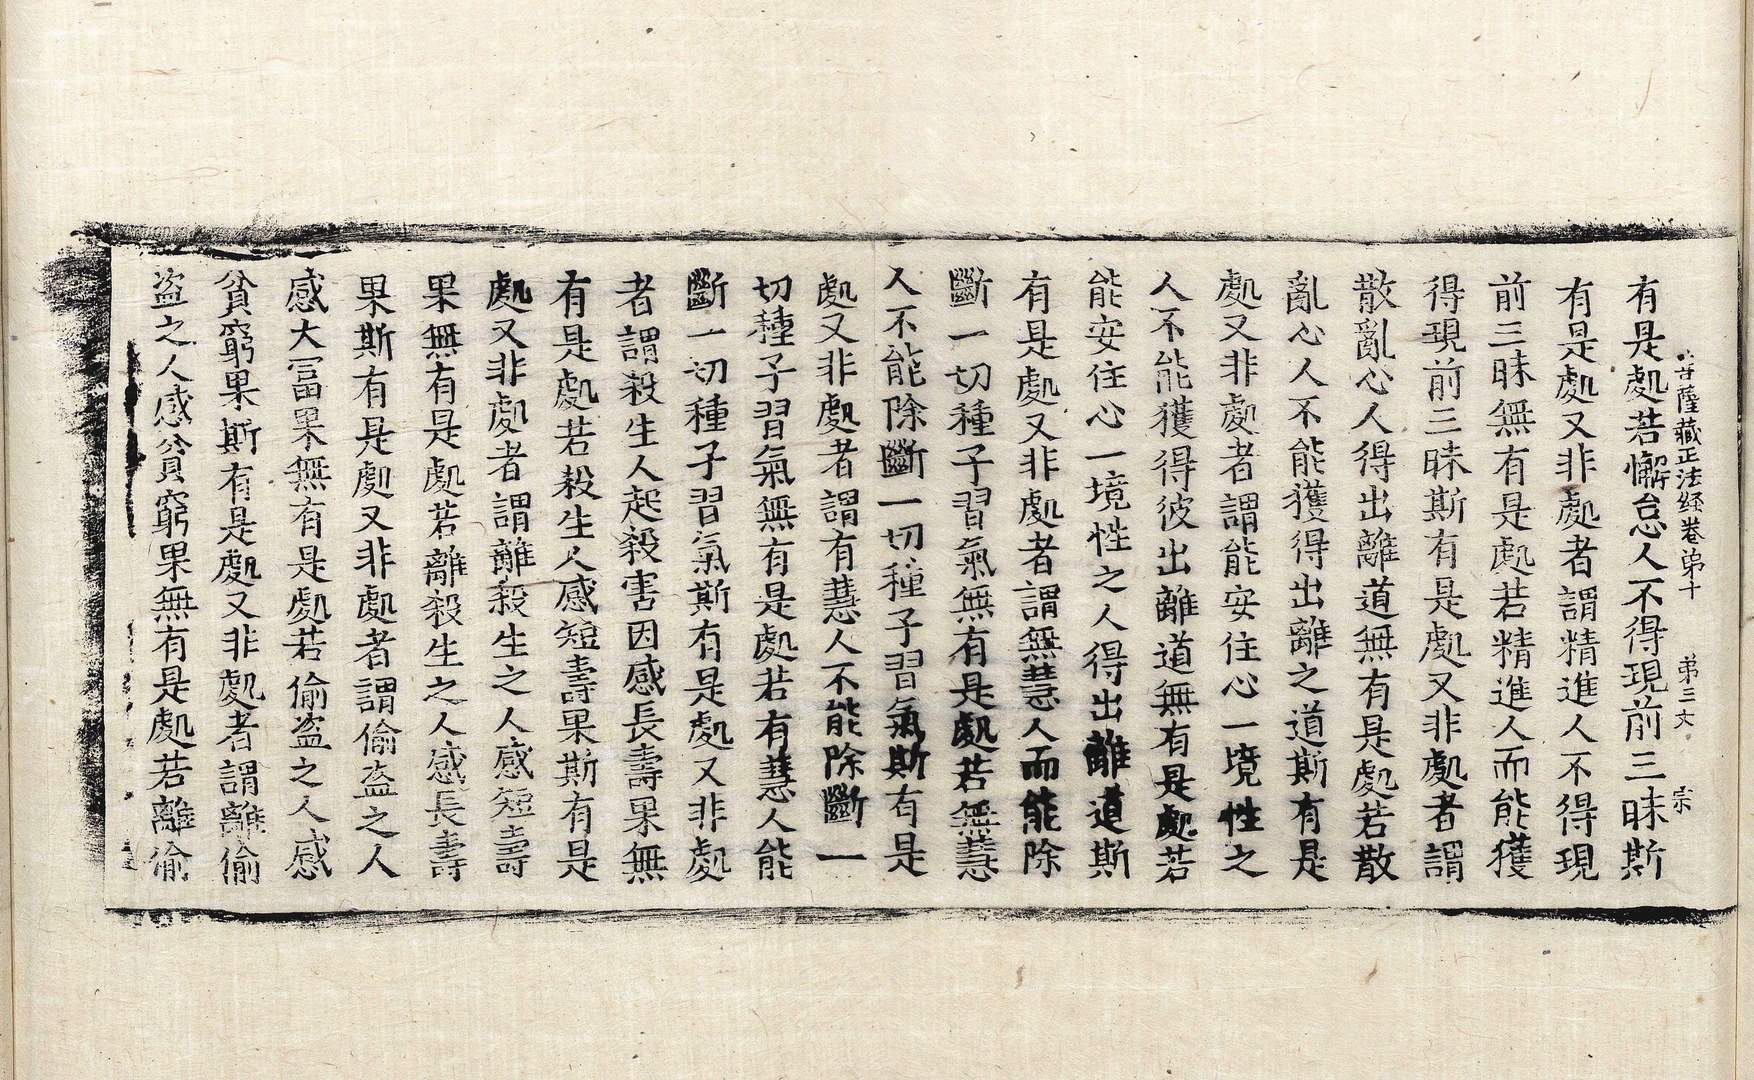 菩薩藏正法经卷弟十 弟三丈 宗
有是處若懈怠人不得現前三昧斯
有是處又非處者謂精進人不得現
前三昧無有是處若精進人而能獲
得現前三昧斯有是處又非處者謂
散亂心人得出離道無有是處若散
亂心人不能獲得出離之道斯有是
處又非處者謂能安住心一境性之
人不能獲得彼出離道無有是處若
能安住心一境性之人得出離道斯
有是處又非處者謂無慧人而能除
斷一切種子習氣無有是處若無慧
人不能除斷一切種子習氣斯有是
處又非處者謂有慧人不能除斷一
切種子習氣無有是處若有慧人能
斷一切種子習氣斯有是處又非處
者謂殺生人起殺害因感長壽果無
有是處若殺生人感短壽果斯有是
處又非處者謂離殺生之人感短壽
果無有是處若離殺生之人感長壽
果斯有是處又非處者謂偷盗之人
感大冨果無有是處若偷盗之人感
貧窮果斯有是處又非處者謂離偷
盗之人感貧窮果無有是處若離偷